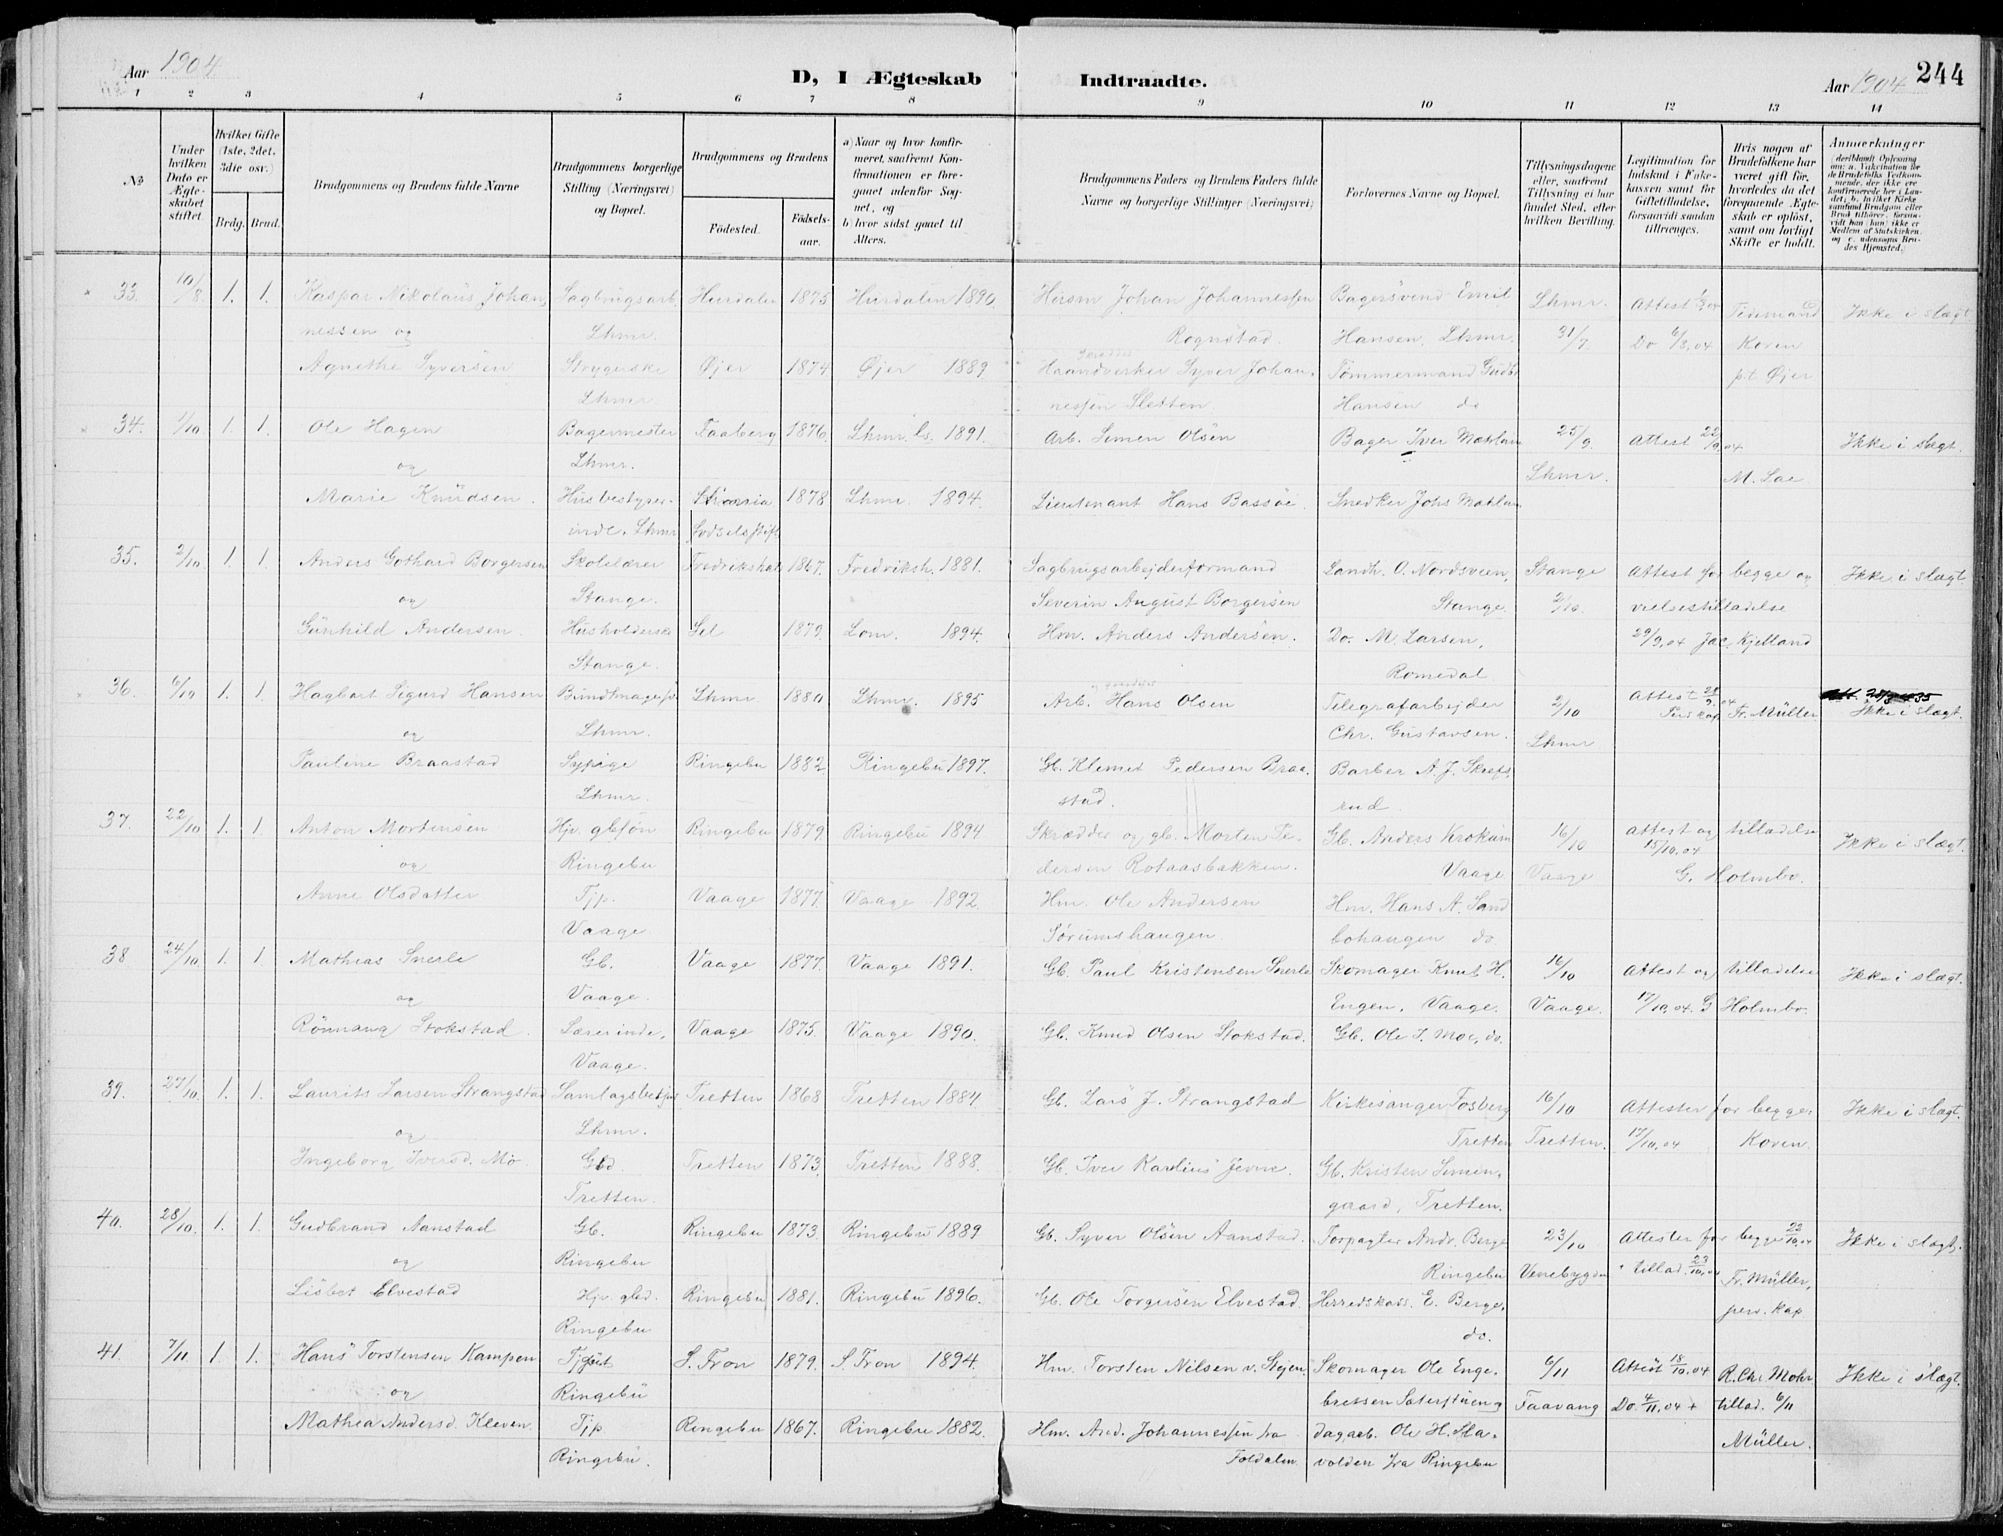 Aar 1904
D, I Ægteskab Indtraadte.
Aar 1904
244
1 2 3 4 5 6 7 8 9 10 11 12 13 14
No
Under hvilken Dato er Ægteskabet stiftet.
Hvilket Gifte (1ste, 2det, 3die osv.)
Brdg. Brud.
Brudgommens og Brudens fulde Navne
Brudgommens borgerlige Stilling (Næringsvei) og Bopæl.
Brudgommens og Brudens
Fødested.
Fødselsaar.
a) Naar og hvor konfirmeret, saafremt Konfirmationen er foregaaet udenfor Sognet, og
b) hvor sidst gaaet til Alters.
Brudgommens Faders og Brudens Faders fulde Navne og borgerlige Stillinger (Næringsvei)
Forlovernes Navne og Bopæl.
Tillysningsdagene eller, saafremt Tillysning ei har fundet Sted, efter hvilken Bevilling.
Legitimation for Indskud i Enkekassen samt for Giftetilladelse, forsaavidt saadan tiltrænges.
Hvis nogen af Brudefolkene har været gift før, hvorledes da det foregaaende Ægteskab er opløst, samt om lovligt Skifte er holdt.
Anmerkninger
33. 10/8 1. 1. Kaspar Nikolaus Johan Sagbrugsarb. Hurdalen 1875 Hurdalen 1890. Husm Johan Johannessen Bagersvend Emil Lhmr. Attest Tidemand Ikke i slægt
nessen og Lhmr. Rognstad. Hansen, Lhmr. 31/7. Do 6/8.04 Koren
Agnethe Syversen Strygerske Øjer 1874 Øjer 1889 Haandverker Syver Johan- Tømmermand Gudb. p.t. Øjer
Lhmr. nessen Sletten. Hansen do
34. 1/10 1. 1. Ole Hagen Bagermester Faaberg 1876. Lhmr. 1891. Arb. Simen Olsen Bager Iver Mæhlum 25/9. Attest 22/9.04 Ikke i slægt.
og Lhmr. Lhmr. M. Lae
Marie Knudsen. Husbestyrer- 1878 Lhmr. 1894. Lieutenant Hans Bassøe. Snedker Johs Mæhlum
inde. Lhmr
35. 2/10 1. 1. Anders Gothard Borgersen Skolelærer Fredrikshal 1867. Fredriksh. 1881. Sagbrugsarbejderformand Landh. O. Nordsveen, Stange Attest for begge og Ikke i slægt
og Stange. Severin August Borgersen Stange. 2/10. vielsestilladelse
Gunhild Andersen. Husholderske Sel 1879. Lom. 1894. Hm. Anders Andersen. Do. M. Larsen, 29/9.04 Jac. Kjelland
Stange. Romedal
36. 6/10 1. 1. Hagbart Sigurd Hansen Bundtmagersv. Lhmr 1880 Lhmr. 1895 Arb. Hans Olsen Telegrafarbejder 2/10 Attest 28/9.04 Fr. Müller Ikke i slægt.
og Lhmr. Chr. Gustavsen. Lhmr Pers kap
Pauline Braastad Sypige Ringebu 1882 Ringebu 1897. Gb. Klemet Pedersen Braa- Barber A. J. Skrefs
Lhmr. stad. rud.
37. 22/10 1. 1. Anton Mortensen Hjv. gbsøn Ringebu 1879. Ringebu 1894 Skrædder og gb. Morten Pe- Gb. Anders Krokum 16/10 Attest og tilladelse Ikke i slægt.
og Ringebu dersen Rotaasbakken. Vaage Vaage 15/10.04 G. Holmbo.
Anne Olsdatter Tjp. Vaage 1877. Vaage 1892. Hm. Ole Andersen Hm. Hans A. Sand
Vaage. Sørumshaugen. bohaugen do.
38 24/10 1. 1 Mathias Snerle Gb. Vaage 1877. Vaage 1891. Gb. Paul Kristensen Snerle Skomager Knut H. 16/10 Attest og tilladelse Ikke i slægt.
og Vaage. Engen, Vaage. Vaage. 17/10.04. G Holmbo.
Rønnaug Stokstad. Lærerinde, Vaage 1875 Vaage 1890. Gb. Knud Olsen Stokstad. Gb. Ole S. Moe, do.
Vaage.
39. 27/10. 1. 1. Laurits Larsen Strangstad Samlagsbestyr Tretten 1868 Tretten 1884 Gb. Lars J. Strangstad Kirkesanger Fosberg 16/10 Attester for begge. Ikke i slægt.
og Lhmr. Tretten Tretten. 17/10.04 Koren.
Ingeborg Iversd. Mo. Gbd Tretten 1873 Tretten 1888. Gb. Iver Karlius Jevne. Gb. Kristen Simen-
Tretten. gaard, Tretten.
40. 28/10. 1. 1. Gudbrand Aanstad Gb. Ringebu 1873 Ringebu 1889 Gb. Syver Olsen Aanstad. Forpagter Andr. Berge 23/10 Attester for begge 22/10.04 Ikke i slægt.
og Ringebu Ringebu Venebygden tillad. 23/10.04 Fr. Müller,
Lisbet Elvestad Hjv. gbd. Ringebu 1881. Ringebu 1896. Gb. Ole Torgersen Elvestad. Herredskass. E. Berge, pers. kap
Ringebu do.
41. 7/11 1. 1. Hans Torstensen Kampen Tjgut S. Fron 1879. S. Fron 1894. Hm. Torsten Nilsen v. Stejen. Skomager Ole Enge- 6/11 Attest 18/10.04 R. Chr. Mohr Ikke i slægt.
og Ringebu bretsen Saterstuen Faavang Do. 4/11.04 + tillad. 6/11
Mathea Andersd. Kleven. Tjp. Ringebu 1867. Ringebu 1882. Hm. And. Johannessen fra dagarb. Ole H. Sla- Müller.
Ringebu. Foldalen. volden fra Ringebu